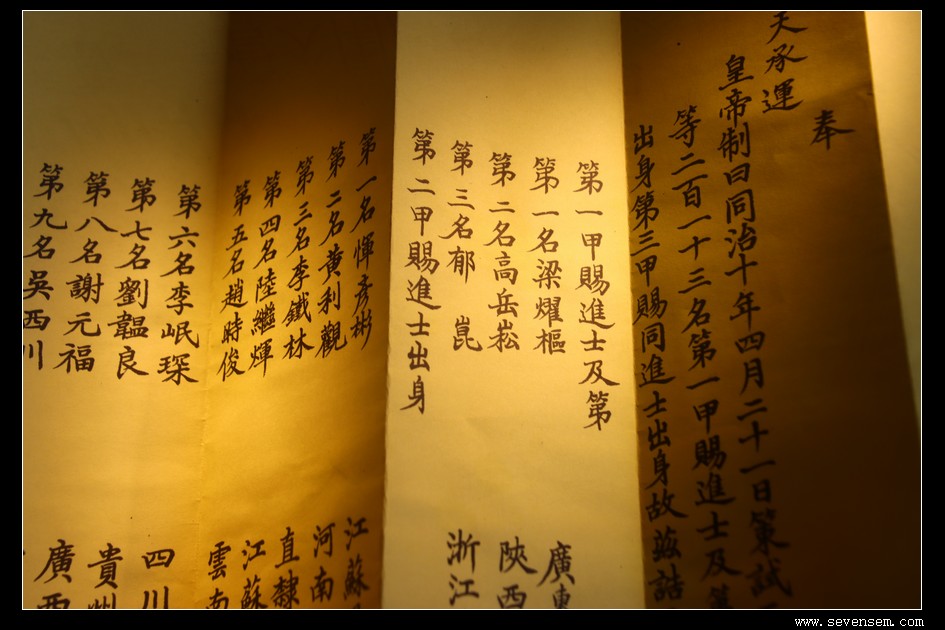 奉
天承運
皇帝制曰同治十年四月二十一日策試
等二百一十三名第一甲賜進士及第
出身第三甲賜同進士出身故茲誥
第一甲賜進士及第
第一名梁耀樞 廣東
第二名高岳崧 陝西
第三名郁 崑 浙江
第二甲賜進士出身
第一名惲彥彬 江蘇
第二名黃利觀 河南
第三名李鐵林 直隸
第四名陸繼煇 江蘇
第五名趙時俊 雲南
第六名李岷琛 四川
第七名劉韞良 貴州
第八名謝元福 廣西
第九名吳西川
www.sevensem.com